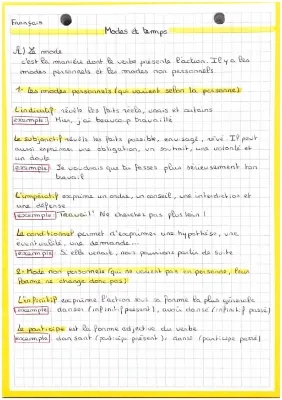 Français
Modes et temps
A) Le mode
c'est la manière dont le verbe présente l'action. Il y a les
modes personnels et les modes non personnels.
1- Les modes personnels (qui varient selon la personne)
L'indicatif: révèle les faits réels, vrais et certains
exemple: Hier, j'ai beaucoup travaillé
Le subjonctif révèle les faits possible, envisagé, rêvé. Il peut
aussi exprimer une obligation, un souhait, une volonté et
un doute
exemple Je voudrais que tu fasses plus sérieusement ton
travail
L'impératif exprime un ordre, un conseil, une interdiction et
une défense
exemple Travail! Ne cherches pas plus loin!
Le conditionnel permet d'exprimer une hypothèse, une
éventualité, une demande...
exemple Si elle venait, nous pourrions partir de suite
2- Mode non personnels (qui ne varient pas en personne, leur
forme ne change donc pas)
L'infinitif exprime l'action sous sa forme la plus générale
exemple danser (infinitif présent), avoir dansé (infinitif passé)
Le participe est la forme adjective du verbe
exemple dansant (participe présent), dansé (participe passé)